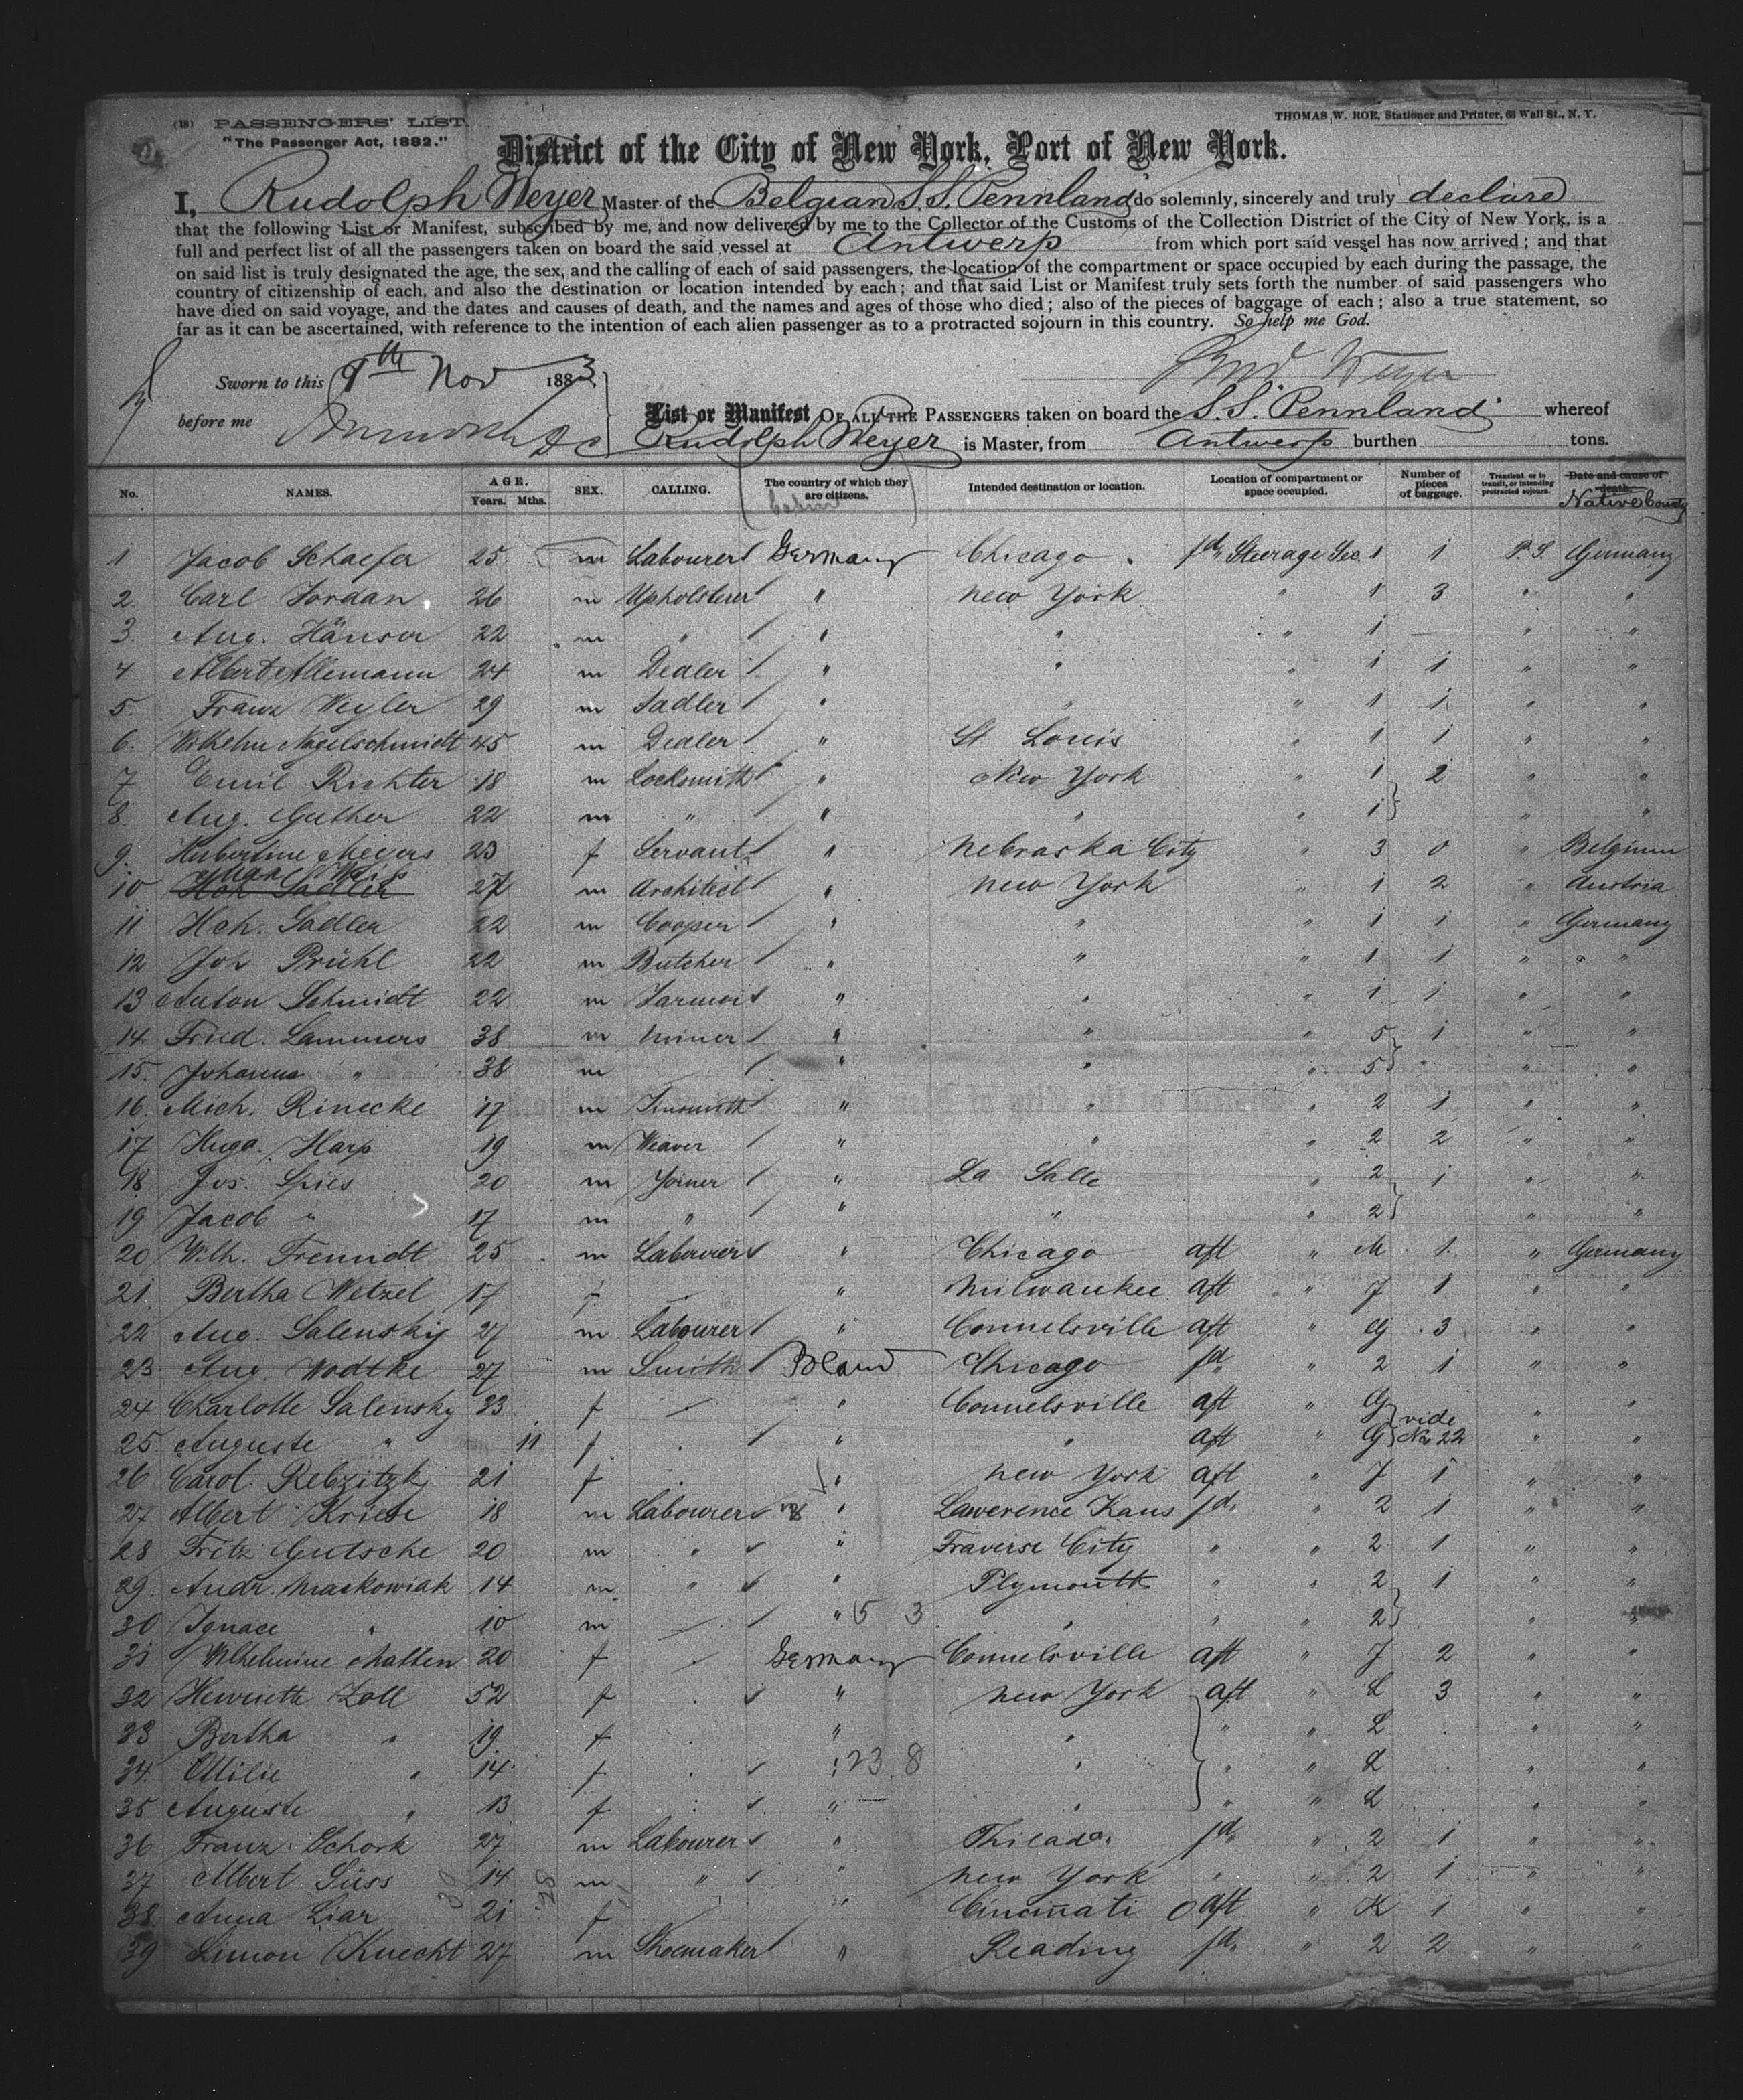 (18) PASSENGERS' LIST.
"The Passenger Act, 1882."
THOMAS W. ROE, Stationer and Printer, 63 Wall St., N. Y.
District of the City of New York, Port of New York.
I, Rudolph Weyer Master of the Belgian S.S. Pennland do solemnly, sincerely and truly declare
that the following List or Manifest, subscribed by me, and now delivered by me to the Collector of the Customs of the Collection District of the City of New York, is a
full and perfect list of all the passengers taken on board the said vessel at Antwerp from which port said vessel has now arrived; and that
on said list is truly designated the age, the sex, and the calling of each of said passengers, the location of the compartment or space occupied by each during the passage, the
country of citizenship of each, and also the destination or location intended by each; and that said List or Manifest truly sets forth the number of said passengers who
have died on said voyage, and the dates and causes of death, and the names and ages of those who died; also of the pieces of baggage of each; also a true statement, so
far as it can be ascertained, with reference to the intention of each alien passenger as to a protracted sojourn in this country. So help me God.
Sworn to this 9th Nov 1883 Rud Weyer
before me
List or Manifest OF ALL THE PASSENGERS taken on board the S.S. Pennland whereof
Rudolph Weyer is Master, from Antwerp burthen tons.
No. NAMES. AGE. Years. Mths. SEX. CALLING. The country of which they are citizens. Intended destination or location. Location of compartment or space occupied. Number of pieces of baggage. Transient, or in transit, or intending protracted sojourn. Date and cause of death. Native County
1 Jacob Schaefer 25 m Labourer Germany Chicago fd. Steerage Sec. 1 1 P.S. Germany
2 Carl Jordan 26 m Upholsterer " New York " 1 3 " "
3. Aug. Hänser 22 m " " " " 1 — " "
4 Albert Allemann 24 m Dealer " " " 1 1 " "
5. Franz Weyler 29 m Sadler " " " 1 1 " "
6. Wilhelm Nagelschmidt 45 m Dealer " St Louis " 1 1 " "
7 Emil Richter 18 m Locksmith " New York " 1 2 " "
8. Aug. Guther 22 m " " " " 1 " "
9. Hubertine Meyers 23 f Servant " Nebraska City " 3 0 " Belgium
10 Hch Sadler Max Weis 27 m Architect " New York " 1 2 " Austria
11 Hch. Sadler 22 m Cooper " " " 1 1 " Germany
12 Joh Brühl 22 m Butcher " " " 1 1 " "
13 Anton Schmidt 22 m Farmer " " " 1 1 " "
14. Fried. Lammers 38 m Miner " " " 5 1 " "
15. Johanna " 38 m " " " 5 " "
16. Mich. Rinecke 17 m Tinsmith " " " 2 1 " "
17 Hugo Harp 19 m Weaver " " " 2 2 " "
18 Jos. Spies 20 m Joiner " La Salle " 2 1 " "
19 Jacob " 17 m " " " " 2 " "
20 Wilh. Fremdt 25 m Labourer " Chicago aft " M 1. " Germany
21. Bertha Wetzel 17 f " Milwaukee aft " J 1 " "
22 Aug. Salensky 27 m Labourer " Connelsville aft " G 3 " "
23 Aug. Wodtke 27 m Smith Poland Chicago fd. " 2 1 " "
24 Charlotte Salensky 23 f " Connelsville aft " G vide " "
25 Auguste " 11 f " " aft " G No 22 " "
26 Carol. Rebzitzk 21 f " New York aft " J 1 " "
27 Albert Kriese 18 m Labourer " Lawerence Kans fd. " 2 1 " "
28 Fritz Gutsche 20 m " " Traverse City " " 2 1 " "
29. Andr. Maskowiak 14 m " " Plymouth " " 2 1 " "
30 Ignace " 10 m " 5 3 " " " 2 " "
31 Wilhelmine Malten 20 f Germany Connelsville aft " J 2 " "
32 Henriette Zoll 52 f " New York aft " L 3 " "
33 Bertha " 19 f " " " L " "
34. Ottilie " 14 f " 23 8 " " " L " "
35 Auguste " 13 f " " " " L " "
36 Franz Schork 27 m Labourer " Philada. fd. " 2 1 " "
37 Albert Süss 14 m " " New York " " 2 1 " "
38 Anna Liar 21 f " Cincinnati aft " K 1 " "
39 Simon Knecht 27 m Shoemaker " Reading fd. " 2 2 " "